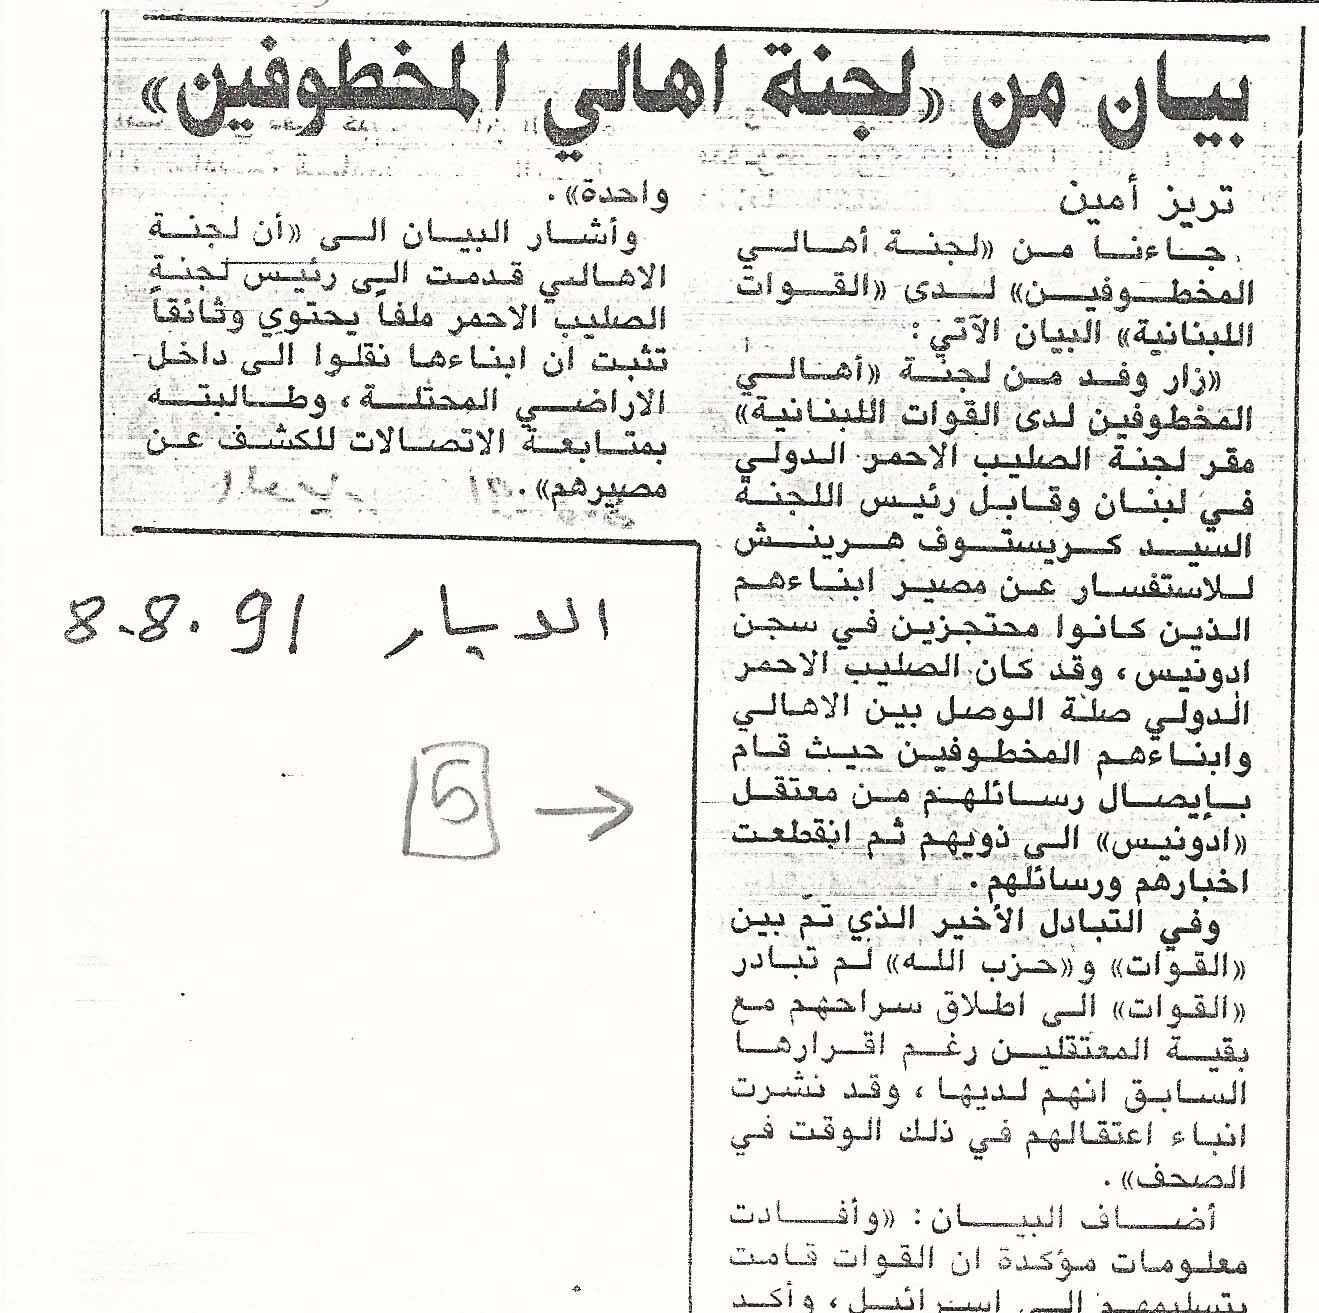 بيان من «لجنة اهالي المخطوفين»
تريز أمين
جاءنا من «لجنة أهالي
المخطوفين» لدى «القوات
اللبنانية» البيان الآتي:
«زار وفد من لجنة «أهالي
المخطوفين لدى القوات اللبنانية»
مقر لجنة الصليب الاحمر الدولي
في لبنان وقابل رئيس اللجنة
السيد كريستوف هرينش
للاستفسار عن مصير ابناءهم
الذين كانوا محتجزين في سجن
ادونيس، وقد كان الصليب الاحمر
الدولي صلة الوصل بين الاهالي
وابناءهم المخطوفين حيث قام
بإيصال رسائلهم من معتقل
«ادونيس» الى ذويهم ثم انقطعت
اخبارهم ورسائلهم.
وفي التبادل الأخير الذي تم بين
«القوات» و«حزب الله» لم تبادر
«القوات» الى اطلاق سراحهم مع
بقية المعتقلين رغم اقرارها
السابق انهم لديها، وقد نشرت
انباء اعتقالهم في ذلك الوقت في
الصحف».
أضاف البيان: «وأفادت
معلومات مؤكدة ان القوات قامت
بتسليمهم الى اسرائيل، وأكد
واحدة».
وأشار البيان الى «أن لجنة
الاهالي قدمت الى رئيس لجنة
الصليب الاحمر ملفاً يحتوي وثائقاً
تثبت ان ابناءها نقلوا الى داخل
الاراضي المحتلة، وطالبته
بمتابعة الاتصالات للكشف عن
مصيرهم».
الديار 8.8.91
5 →